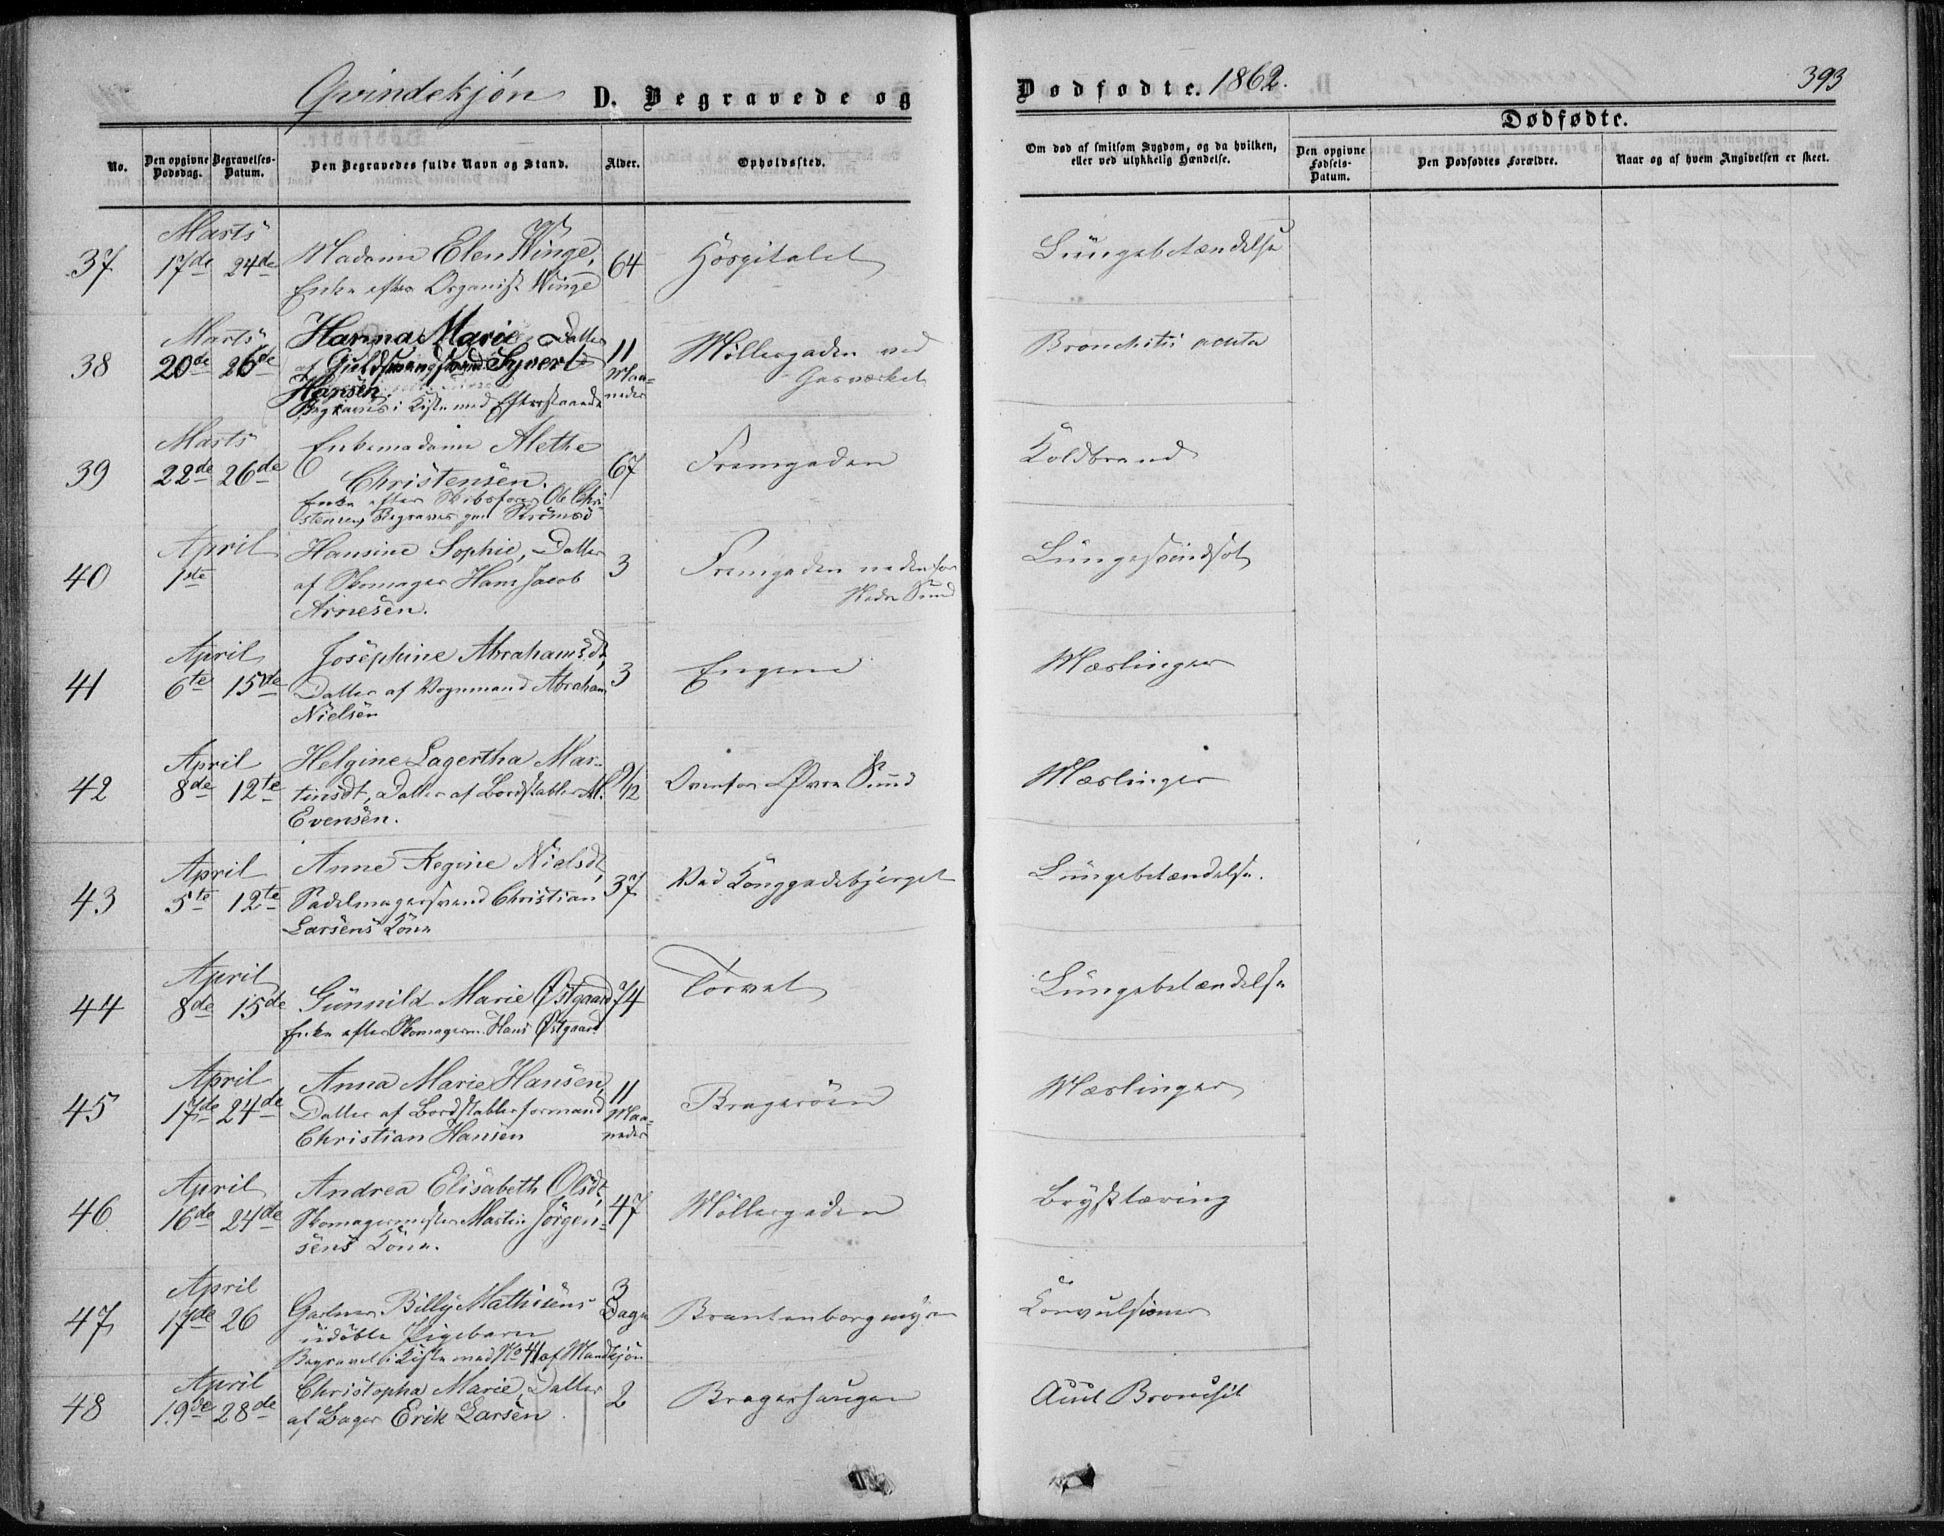 Qvindekjön D. Begravede og Dødfødte. 1862. 393
No. Den opgivne Dødsdag. Begravelses-Datum. Den Begravedes fulde Navn og Stand. Alder. Opholdssted. Om død af smitsom Sygdom, og da hvilken, eller ved ulykkelig Hændelse. Dødfødte.
Den opgivne Fødsels-Datum. Den Dødfødtes Forældre. Naar og af hvem Angivelsen er skeet.
Marts
37 17de 24de Madame Elen Winge, 64 Hospitalet Lungebetændelse
Enke efter Organist Winge
Marts Hanna Marie, Datter
38 20de 26de af Syvert 11 Maaneder Møllergaden ved Gasværket Bronchitis acuta
Hansen.
Begraves i Kiste med Efterstaaende
Marts Enkemadame Alethe
39 22de 26de Christensen. 67 Fremgaden Koldbrand
Enke efter Skibsfører Ole Chri-
stensen, Begraves paa Strömsö
April Hansine Sophie, Datter
40 1ste af Skomager Hans Jacob 3 Fremgaden nedenfor Nedre Sund Lungesvindsot
Arnesen.
April Josephine Abrahamsdt,
41 6te 15de Datter af Vognmand Abraham 3 Engene Mæslinger
Nielsen
April Helgine Lagertha Mar-
42 8de 12te tinsdt, Datter af Bordstabler M. Ovenfor Øvre Sund Mæslinger
Evensen.
April Anne Regine Nielsdt,
43 5te 12te Sadelmagersvend Christian 37 Ved Konggadebjerget Lungebetændelse.
Larsens Kone
April
44 8de 15de Gunnild Marie Østgaard 74 Torvet Lungebetændelse
Enke efter Skomagerm. Hans Østgaard
April Anna Marie Hansen,
45 17de 24de Datter af Bordstablerformand 11 Maaneder Bragerøen Mæslinger
Christian Hansen
April Andrea Elisabeth Olsdt,
46 16de 24de Skomagermester Martin Jörgen- 47 Møllergaden Brystlæring
sens Kone.
April
47 17de 26 Gartner Billy Mathisens 3 Dage Brantenborgmyren Convulsioner
udöbte Pigebarn
Begravet i Kiste med No 41 af Mandkjön
April Christopha Marie, Datter
48 19de 28de af Bager Erik Larsen. 2 Bragerhaugen